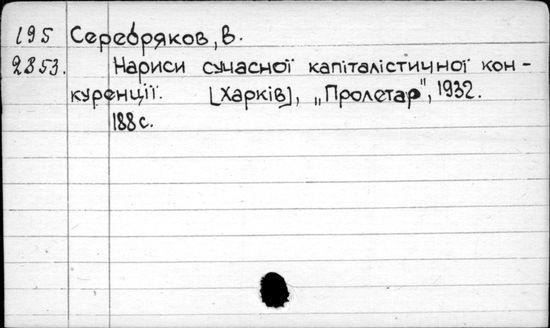 195 Серебряков, В.
2853. Нариси сучасної капіталістичної кон-
куренції. [Харків], „Пролетар", 1932.
188 с.